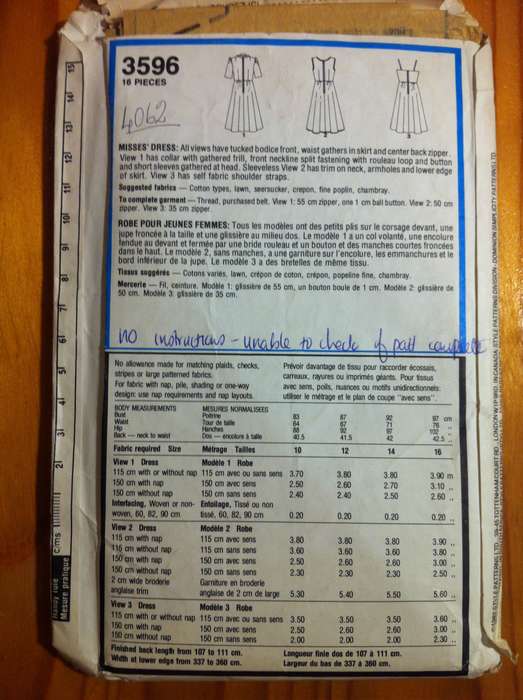 3596
16 PIECES
4062
MISSES' DRESS: All views have tucked bodice front, waist gathers in skirt and center back zipper.
View 1 has collar with gathered frill, front neckline split fastening with rouleau loop and button
and short sleeves gathered at head. Sleeveless View 2 has trim on neck, armholes and lower edge
of skirt. View 3 has self fabric shoulder straps.
Suggested fabrics – Cotton types, lawn, seersucker, crepon, fine poplin, chambray.
To complete garment – Thread, purchased belt. View 1: 55 cm zipper, one 1 cm ball button. View 2: 50 cm
zipper. View 3: 35 cm zipper.
ROBE POUR JEUNES FEMMES: Tous les modèles ont des petits plis sur le corsage devant, une
jupe froncée à la taille et une glissière au milieu dos. Le modèle 1 a un col volanté, une encolure
fendue au devant et fermée par une bride rouleau et un bouton et des manches courtes froncées
dans le haut. Le modèle 2, sans manches, a une garniture sur l'encolure, les emmanchures et le
bord inférieur de la jupe. Le modèle 3 a des bretelles de même tissu.
Tissus suggérés – Cotons variés, lawn, crépon de coton, crépon, popeline fine, chambray.
Mercerie – Fil, ceinture. Modèle 1: glissière de 55 cm, un bouton boule de 1 cm. Modèle 2: glissière de
50 cm. Modèle 3: glissière de 35 cm.
NO instructions – unable to check if patt complete
No allowance made for matching plaids, checks,
stripes or large patterned fabrics.
For fabric with nap, pile, shading or one-way
design: use nap requirements and nap layouts.
Prévoir davantage de tissu pour raccorder écossais,
carreaux, rayures ou imprimés géants. Pour tissus
avec sens, poils, nuances ou motifs unidirectionnels:
utiliser le métrage et le plan de coupe "avec sens".
BODY MEASUREMENTS MESURES NORMALISEES
Bust Poitrine 83 87 92 97 cm
Waist Tour de taille 64 67 71 76 ,,
Hip Hanches 88 92 97 102 ,,
Back – neck to waist Dos – encolure à taille 40.5 41.5 42 42.5 ,,
Fabric required Size Métrage Tailles 10 12 14 16
View 1 Dress Modèle 1 Robe
115 cm with or without nap 115 cm avec ou sans sens 3.70 3.80 3.80 3.90 m
150 cm with nap 150 cm avec sens 2.50 2.60 2.70 3.10 ,,
150 cm without nap 150 cm sans sens 2.40 2.40 2.50 2.60 ,,
Interfacing, Woven or non- Entoilage, Tissé ou non
woven, 60, 82, 90 cm tissé, 60, 82, 90 cm 0.20 0.20 0.20 0.20 ,,
View 2 Dress Modèle 2 Robe
115 cm with nap 115 cm avec sens 3.80 3.80 3.80 3.90 ,,
115 cm without nap 115 cm sans sens 3.60 3.60 3.60 3.80 ,,
150 cm with nap 150 cm avec sens 2.50 2.60 2.60 3.00 ,,
150 cm without nap 150 cm sans sens 2.30 2.30 2.30 2.50 ,,
2 cm wide broderie Garniture en broderie
anglaise trim anglaise de 2 cm de large 5.30 5.40 5.50 5.60 ,,
View 3 Dress Modèle 3 Robe
115 cm with or without nap 115 cm avec ou sans sens 3.50 3.50 3.50 3.60 ,,
150 cm with nap 150 cm avec sens 2.50 2.60 2.60 3.00 ,,
150 cm without nap 150 cm sans sens 2.00 2.00 2.00 2.30 ,,
Finished back length from 107 to 111 cm.
Width at lower edge from 337 to 360 cm.
Longueur finie dos de 107 à 111 cm.
Largeur du bas de 337 à 360 cm.
Handy rule
Mesure pratique
Cms
2 3 4 5 6 7 8 9 10 11 12 13 14 15